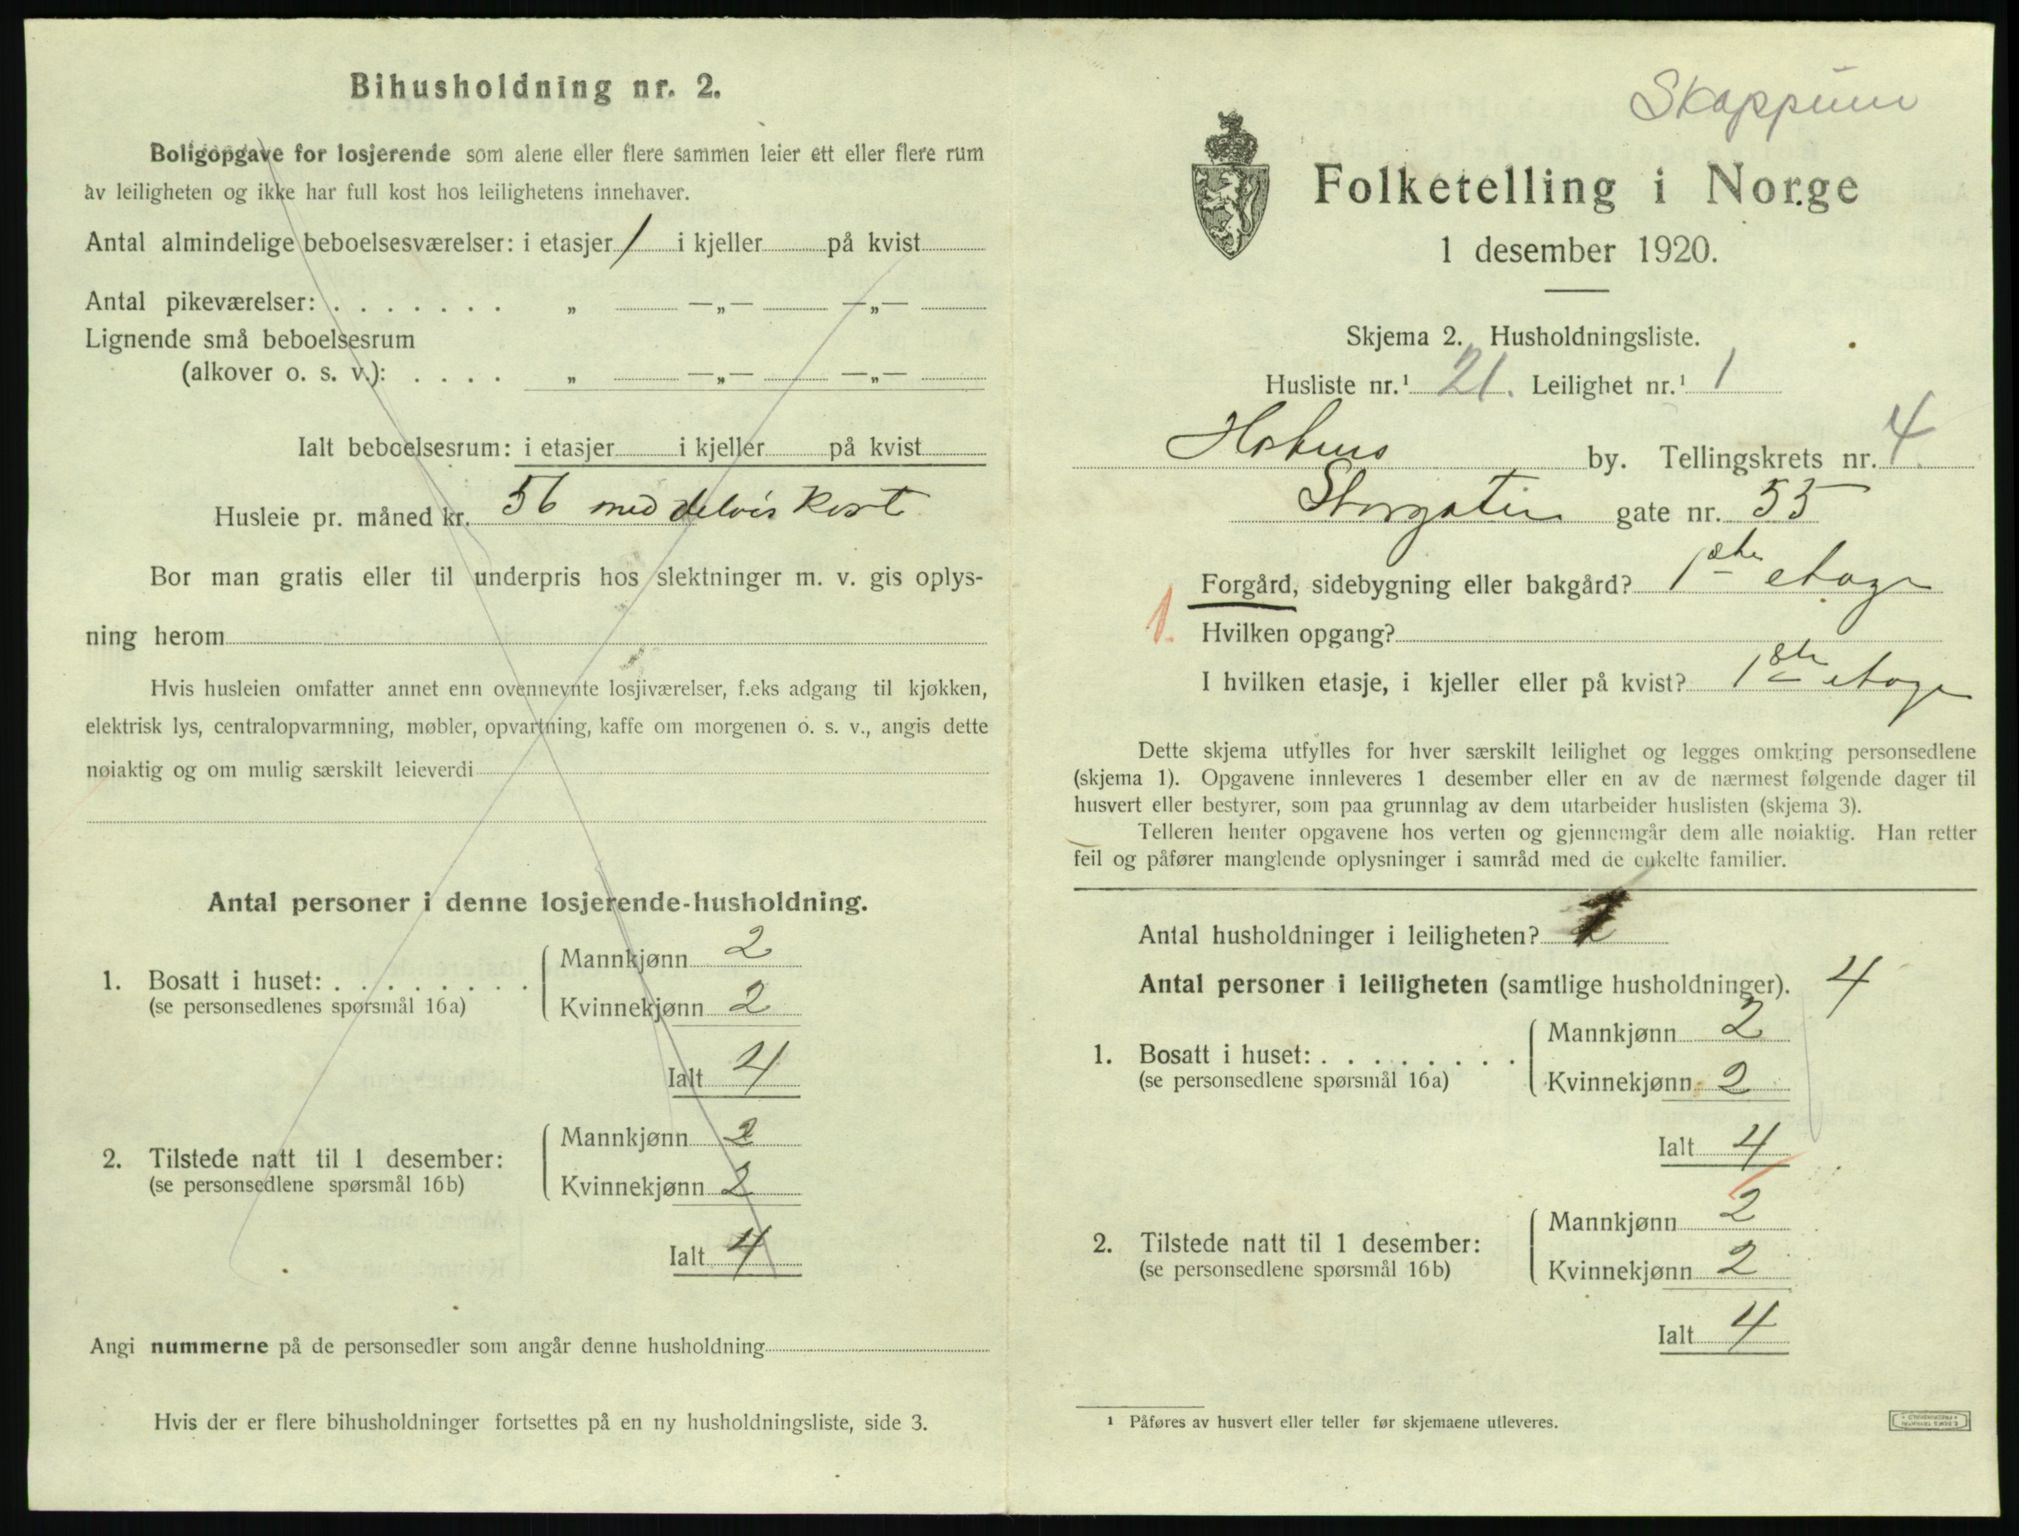 Bihusholdning nr. 2.
Boligopgave for losjerende som alene eller flere sammen leier ett eller flere rum
av leiligheten og ikke har full kost hos leilighetens innehaver.
Antal almindelige beboelsesværelser: i etasjer 1 i kjeller på kvist
Antal pikeværelser: . . . . . . . „ —„— —„—
Lignende små beboelsesrum
(alkover o. s. v.): . . . . „ —„— —„—
Ialt beboelsesrum: i etasjer i kjeller på kvist
Husleie pr. måned kr. 56 med delvis kost
Bor man gratis eller til underpris hos slektninger m. v. gis oplys-
ning herom
Hvis husleien omfatter annet enn ovennevnte losjiværelser, f.eks adgang til kjøkken,
elektrisk lys, centralopvarmning, møbler, opvartning, kaffe om morgenen o. s. v., angis dette
nøiaktig og om mulig særskilt leieverdi
Antal personer i denne losjerende-husholdning.
1. Bosatt i huset: . . . . . . . . Mannkjønn 2
(se personsedlenes spørsmål 16a) Kvinnekjønn 2
Ialt 4
2. Tilstede natt til 1 desember: Mannkjønn 2
(se personsedlene spørsmål 16b) Kvinnekjønn 2
Ialt 4
Angi nummerne på de personsedler som angår denne husholdning
Hvis der er flere bihusholdninger fortsettes på en ny husholdningsliste, side 3.
Skoppum
Folketelling i Norge
1 desember 1920.
Skjema 2. Husholdningsliste.
Husliste nr.¹ 21. Leilighet nr.¹ 1
by. Tellingskrets nr. 4.
Storgaten gate nr. 55
Forgård, sidebygning eller bakgård? 1ste etage
1. Hvilken opgang?
I hvilken etasje, i kjeller eller på kvist? 1ste etage
Dette skjema utfylles for hver særskilt leilighet og legges omkring personsedlene
(skjema 1). Opgavene innleveres 1 desember eller en av de nærmest følgende dager til
husvert eller bestyrer, som paa grunnlag av dem utarbeider huslisten (skjema 3).
Telleren henter opgavene hos verten og gjennemgår dem alle nøiaktig. Han retter
feil og påfører manglende oplysninger i samråd med de enkelte familier.
Antal husholdninger i leiligheten?
Antal personer i leiligheten (samtlige husholdninger). 4
1. Bosatt i huset: . . . . . . . . Mannkjønn 2
(se personsedlene spørsmål 16a) Kvinnekjønn 2
Ialt 4
2. Tilstede natt til 1 desember: Mannkjønn 2
(se personsedlene spørsmål 16b) Kvinnekjønn 2
Ialt 4
¹ Påføres av husvert eller teller før skjemaene utleveres.